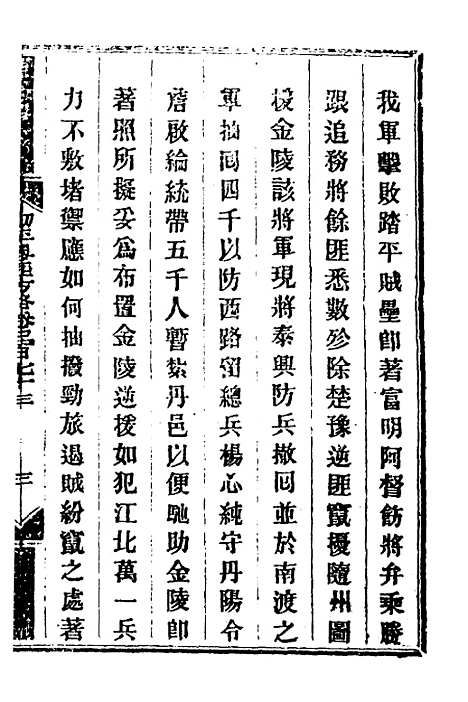 我軍擊敗踏平賊壘卽著富明阿督飭將弁乘勝
跟追務將餘匪悉數殄除楚豫逆匪竄擾隨州圖
援金陵該將軍現將泰興防兵撤囘並於南渡之
軍抽囘四千以防西路留總兵楊心純守丹陽令
詹啟綸統帶五千人暫紮丹邑以便馳助金陵卽
著照所擬妥爲布置金陵逆援如犯江北萬一兵
力不敷堵禦應如何抽撥勁旅遏賊紛竄之處著
三